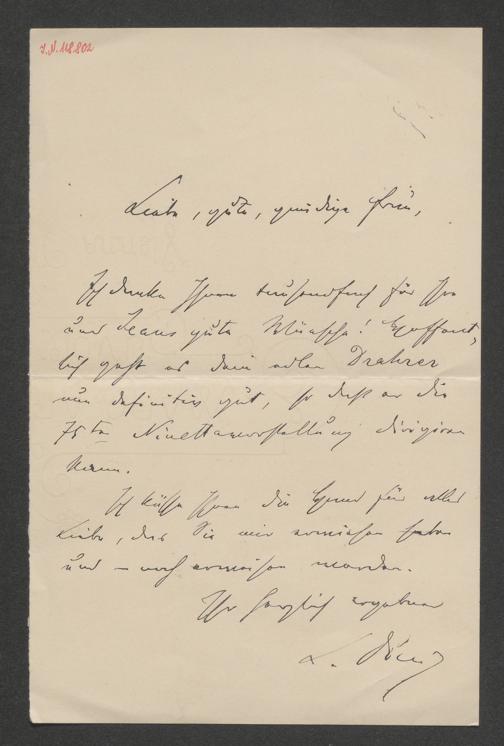 I.N. 118.802
Liebe, gute, gnädige Frau,
Ich danke Ihnen tausendfach für Ihre
und Jeans gute Wünsche! Hoffent,
lich geht es dem edlen Drahrer
nun definitiv gut, so daß er die
75te Ninettavorstellung dirigiren
kann.
Ich küsse Ihnen die Hand für alle
Liebe, die Sie mir erwiesen haben
und – noch erweisen werden.
Ihr herzlich ergebener
L.